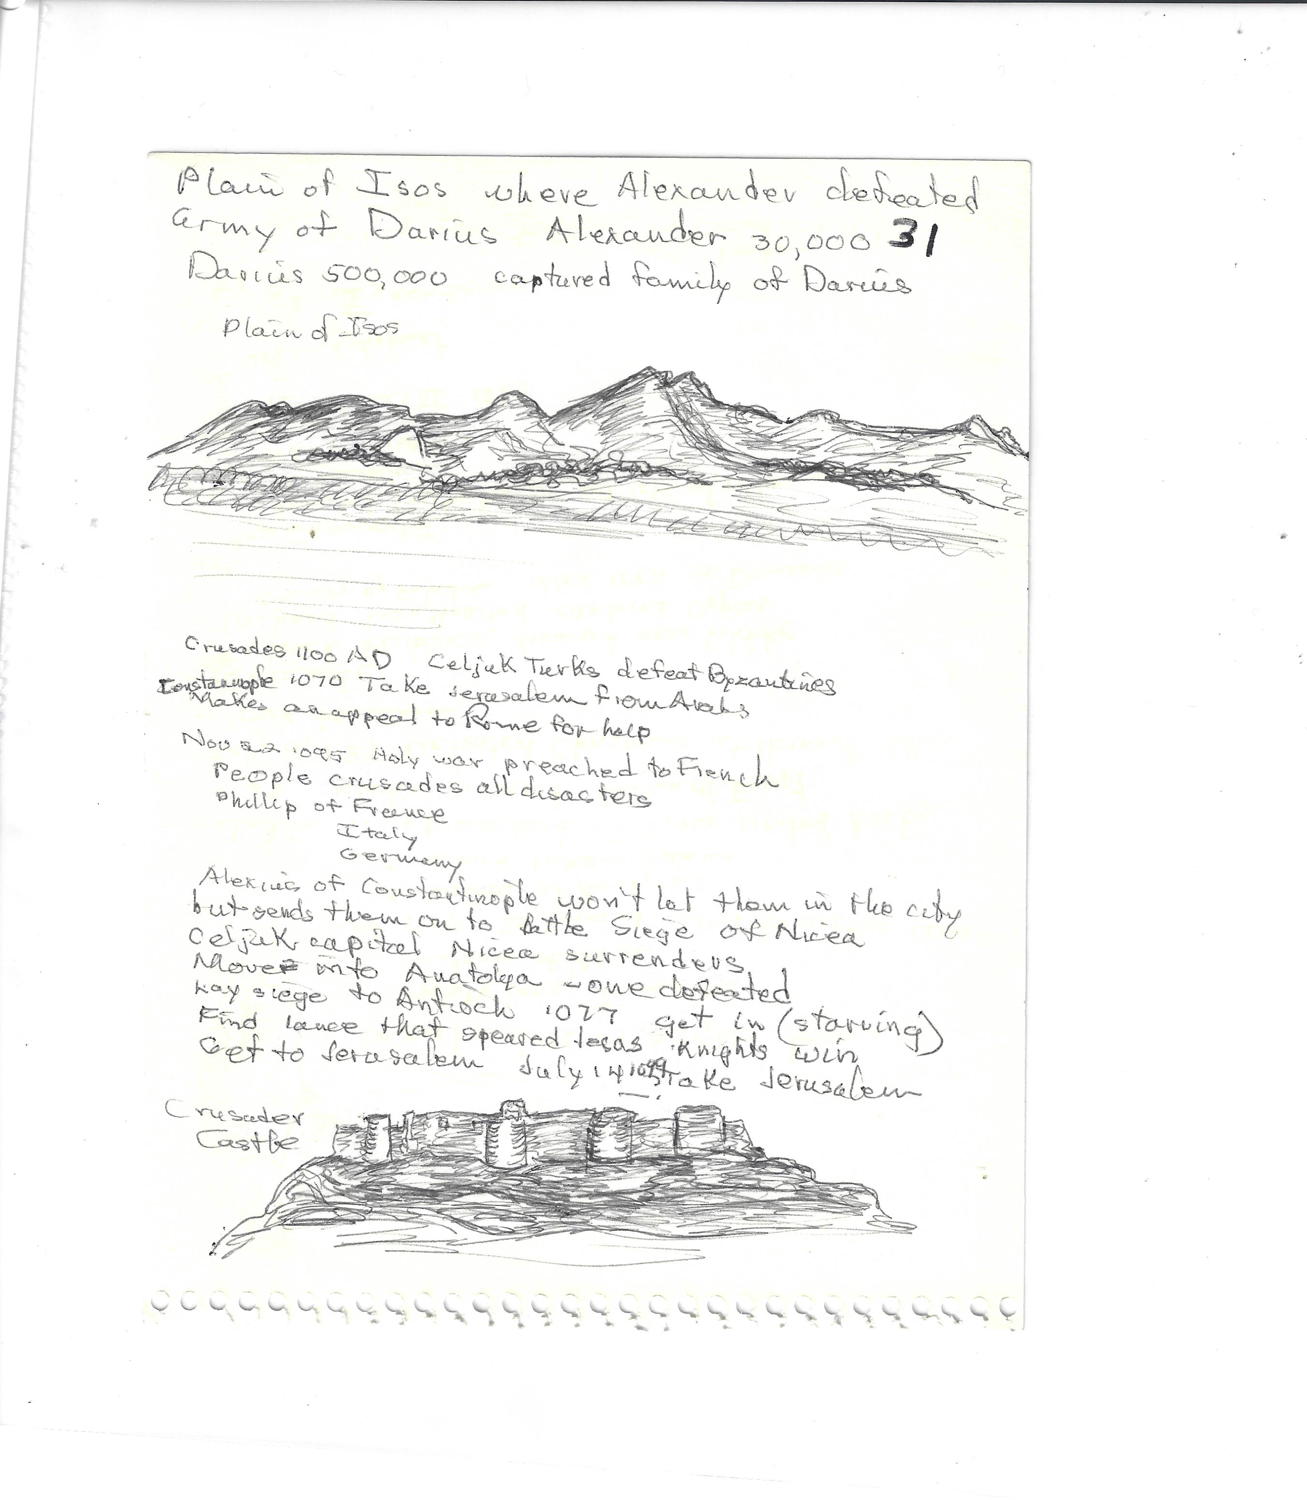 Plain of Isos where Alexander defeated
army of Darius Alexander 30,000 31
Darius 500,000 captured family of Darius
Plain of Isos
Crusades 1100 AD Celjuk Turks defeat Byzantines
Constanople 1070 Take Jerusalem from Arabs
Makes an appeal to Rome for help
Nov 22 1095 Holy war preached to French
People crusades all disasters
Phillip of France
Italy
Germany
Alexius of Constantinople won't let them in the city
but sends them on to battle Siege of Nicea
Celjuk capital Nicea surrenders
Move into Anatolya - one defeated
Lay siege to Antioch 1077 get in (starving)
Find lance that speared Jesas Knights win
Get to Jerusalem July 14 1099 Take Jerusalem
Crusader
Castle